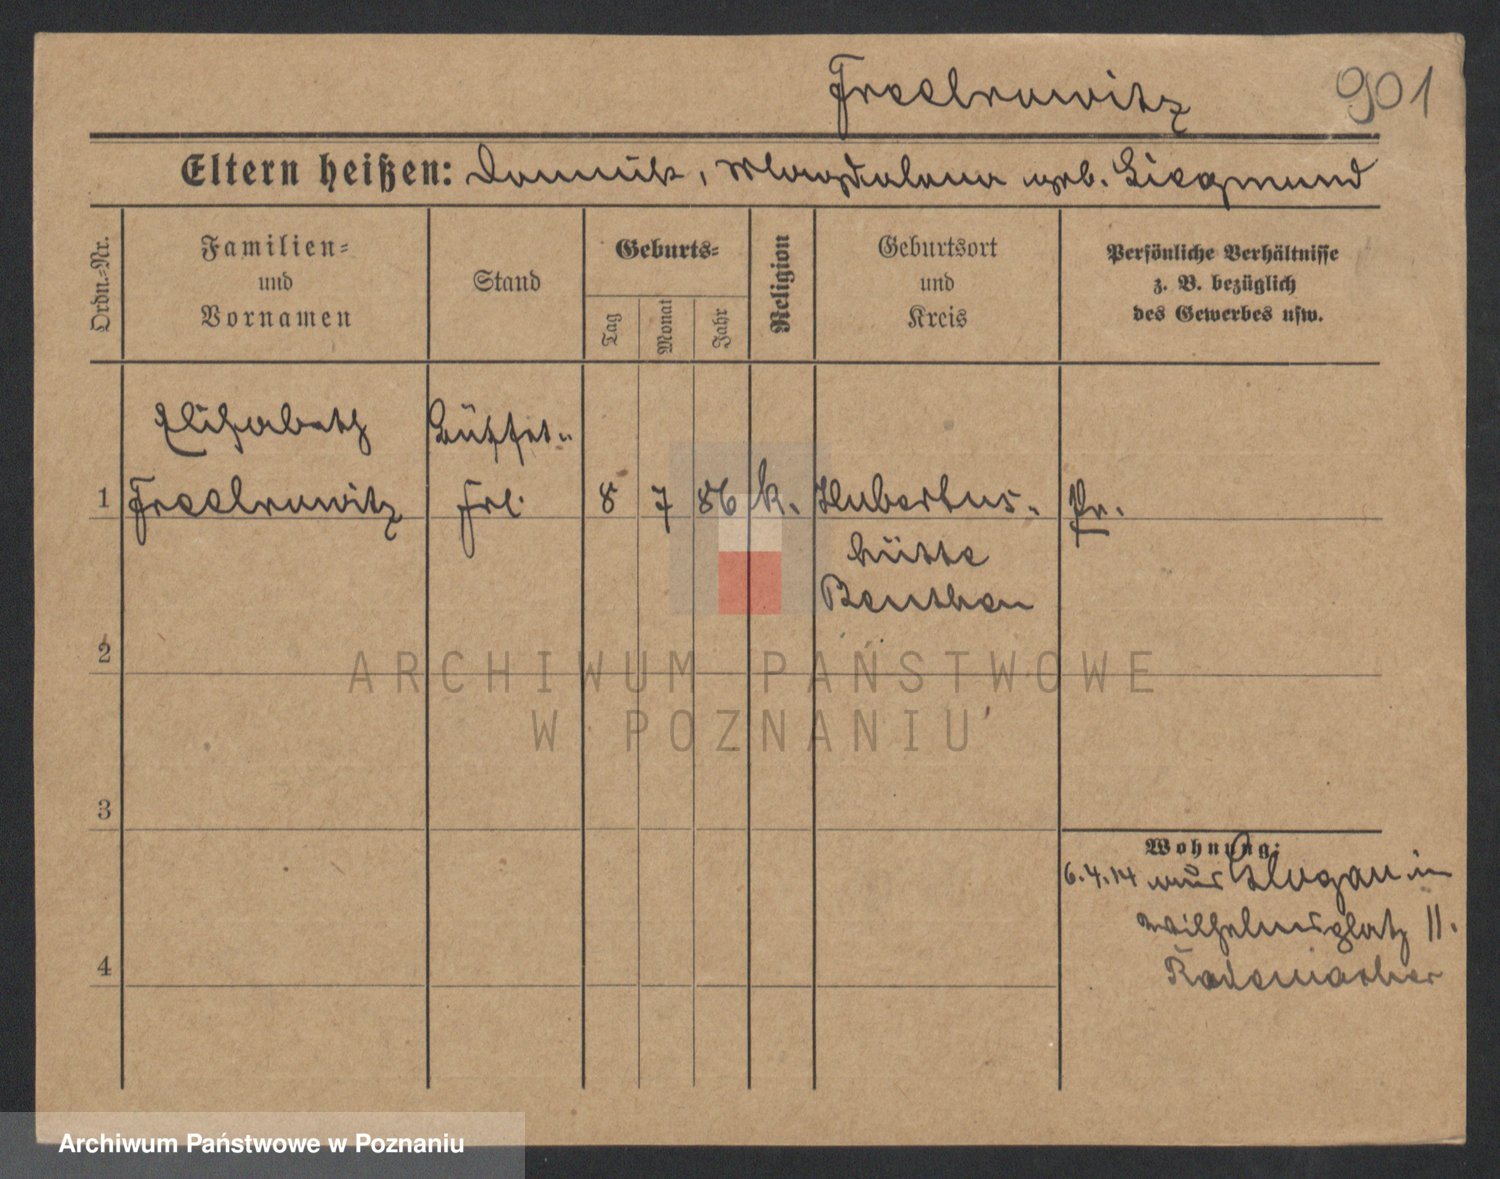 Frechrowitz
901
Eltern heißen: Dominik, Magdalena geb. Siegmund
Ordn.-Nr.
Familien-
und
Vornamen
Stand
Geburts-
Tag
Monat
Jahr
Religion
Geburtsort
und
Kreis
Persönliche Verhältnisse
z. B. bezüglich
des Gewerbes usw.
Elisabeth Büffet-
1 Frechrowitz Frl. 8 7 86 k. Hubertus- Pr.
hütte
Beuthen
2
ARCHIWUM PAŃSTWOWE
W POZNANIU
3
Wohnung:
6.4.14 aus Glogau in
Wilhelmsplatz 11.
Rademacher
4
Archiwum Państwowe w Poznaniu